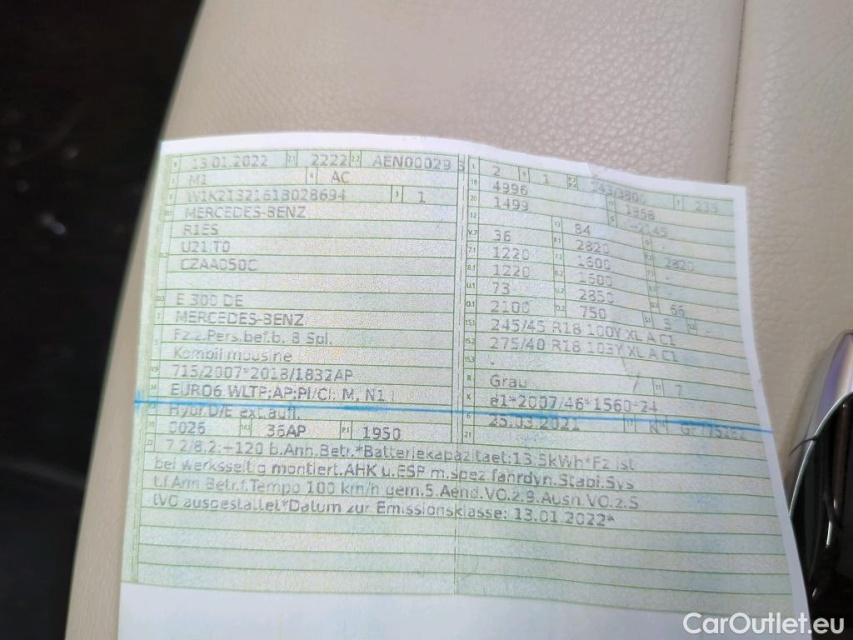 13.01.2022 2222 AEN00029
M1 AC
W1K2132161B028694 1
MERCEDES-BENZ
R1ES
U21 T0
CZAA050C
E 300 DE
MERCEDES-BENZ
Fz.z.Pers.bef.b. 8 Spl.
Kombilimousine
715/2007*2018/1832AP
EURO6 WLTP;AP;PI/CI; M, N1 I
Hybr.D/E ext.aufl.
0026 36AP 1950
2 1
4996
1499
36 84
1220 2820 2820
1220 1600
73 1600
2100 2855 66
750 5
245/45 R18 100Y XL A C1
275/40 R18 103Y XL A C1
Grau / 7
e1*2007/46*1560*24
25.03.2021 N
7.2/8.2:+120 b.Ann.Betr.*Batteriekapazitaet:13,5kWh*Fz ist
bei werksseitig montiert.AHK u.ESP m.spez fahrdyn.Stabi.Sys
t.f.Ann Betr.f.Tempo 100 km/h gem.5.Aend.VO.z.9.Ausn.VO.z.S
tVO ausgestattet*Datum zur Emissionsklasse: 13.01.2022*
CarOutlet.eu